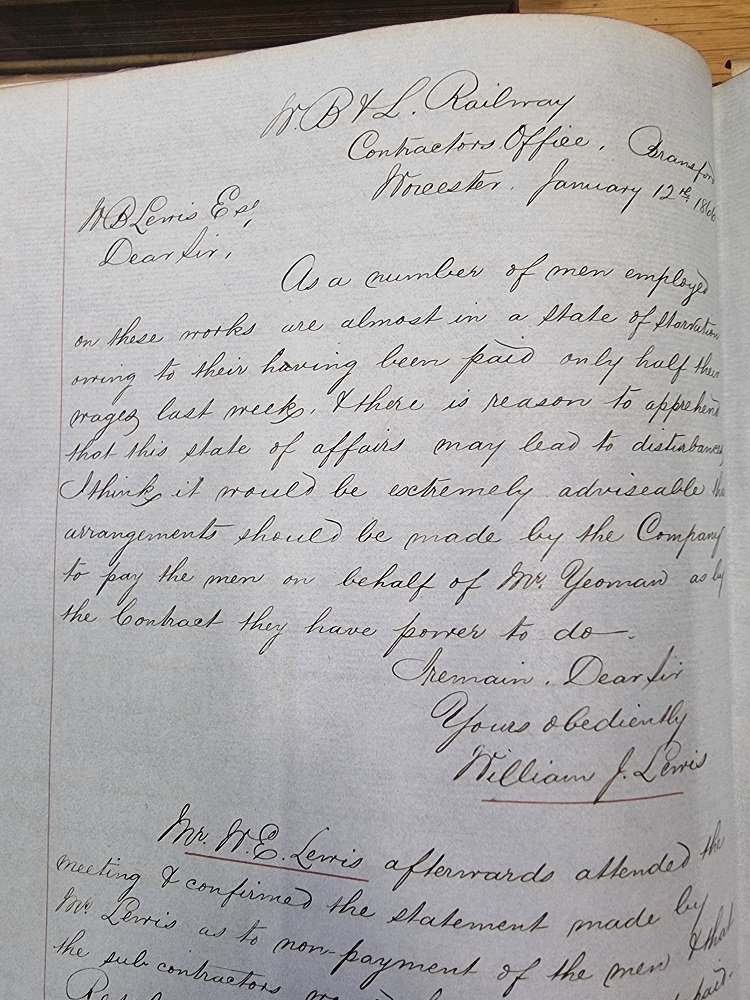 W. B & L. Railway
Contractors Office, Bransford
Worcester. January 12th, 1866
W B Lewis Esq,
Dear Sir,
As a number of men employed
on these works are almost in a state of starvation
owing to their having been paid only half their
wages last week, & there is reason to apprehend
that this state of affairs may lead to disturbances
I think it would be extremely adviseable that
arrangements should be made by the Company
to pay the men on behalf of Mr. Yeoman as by
the Contract they have power to do.
I remain. Dear Sir
Yours obediently
William J. Lewis
Mr. W. E. Lewis afterwards attended the
meeting & confirmed the statement made by
Mr. Lewis as to non-payment of the men & that
the sub contractors
paid.